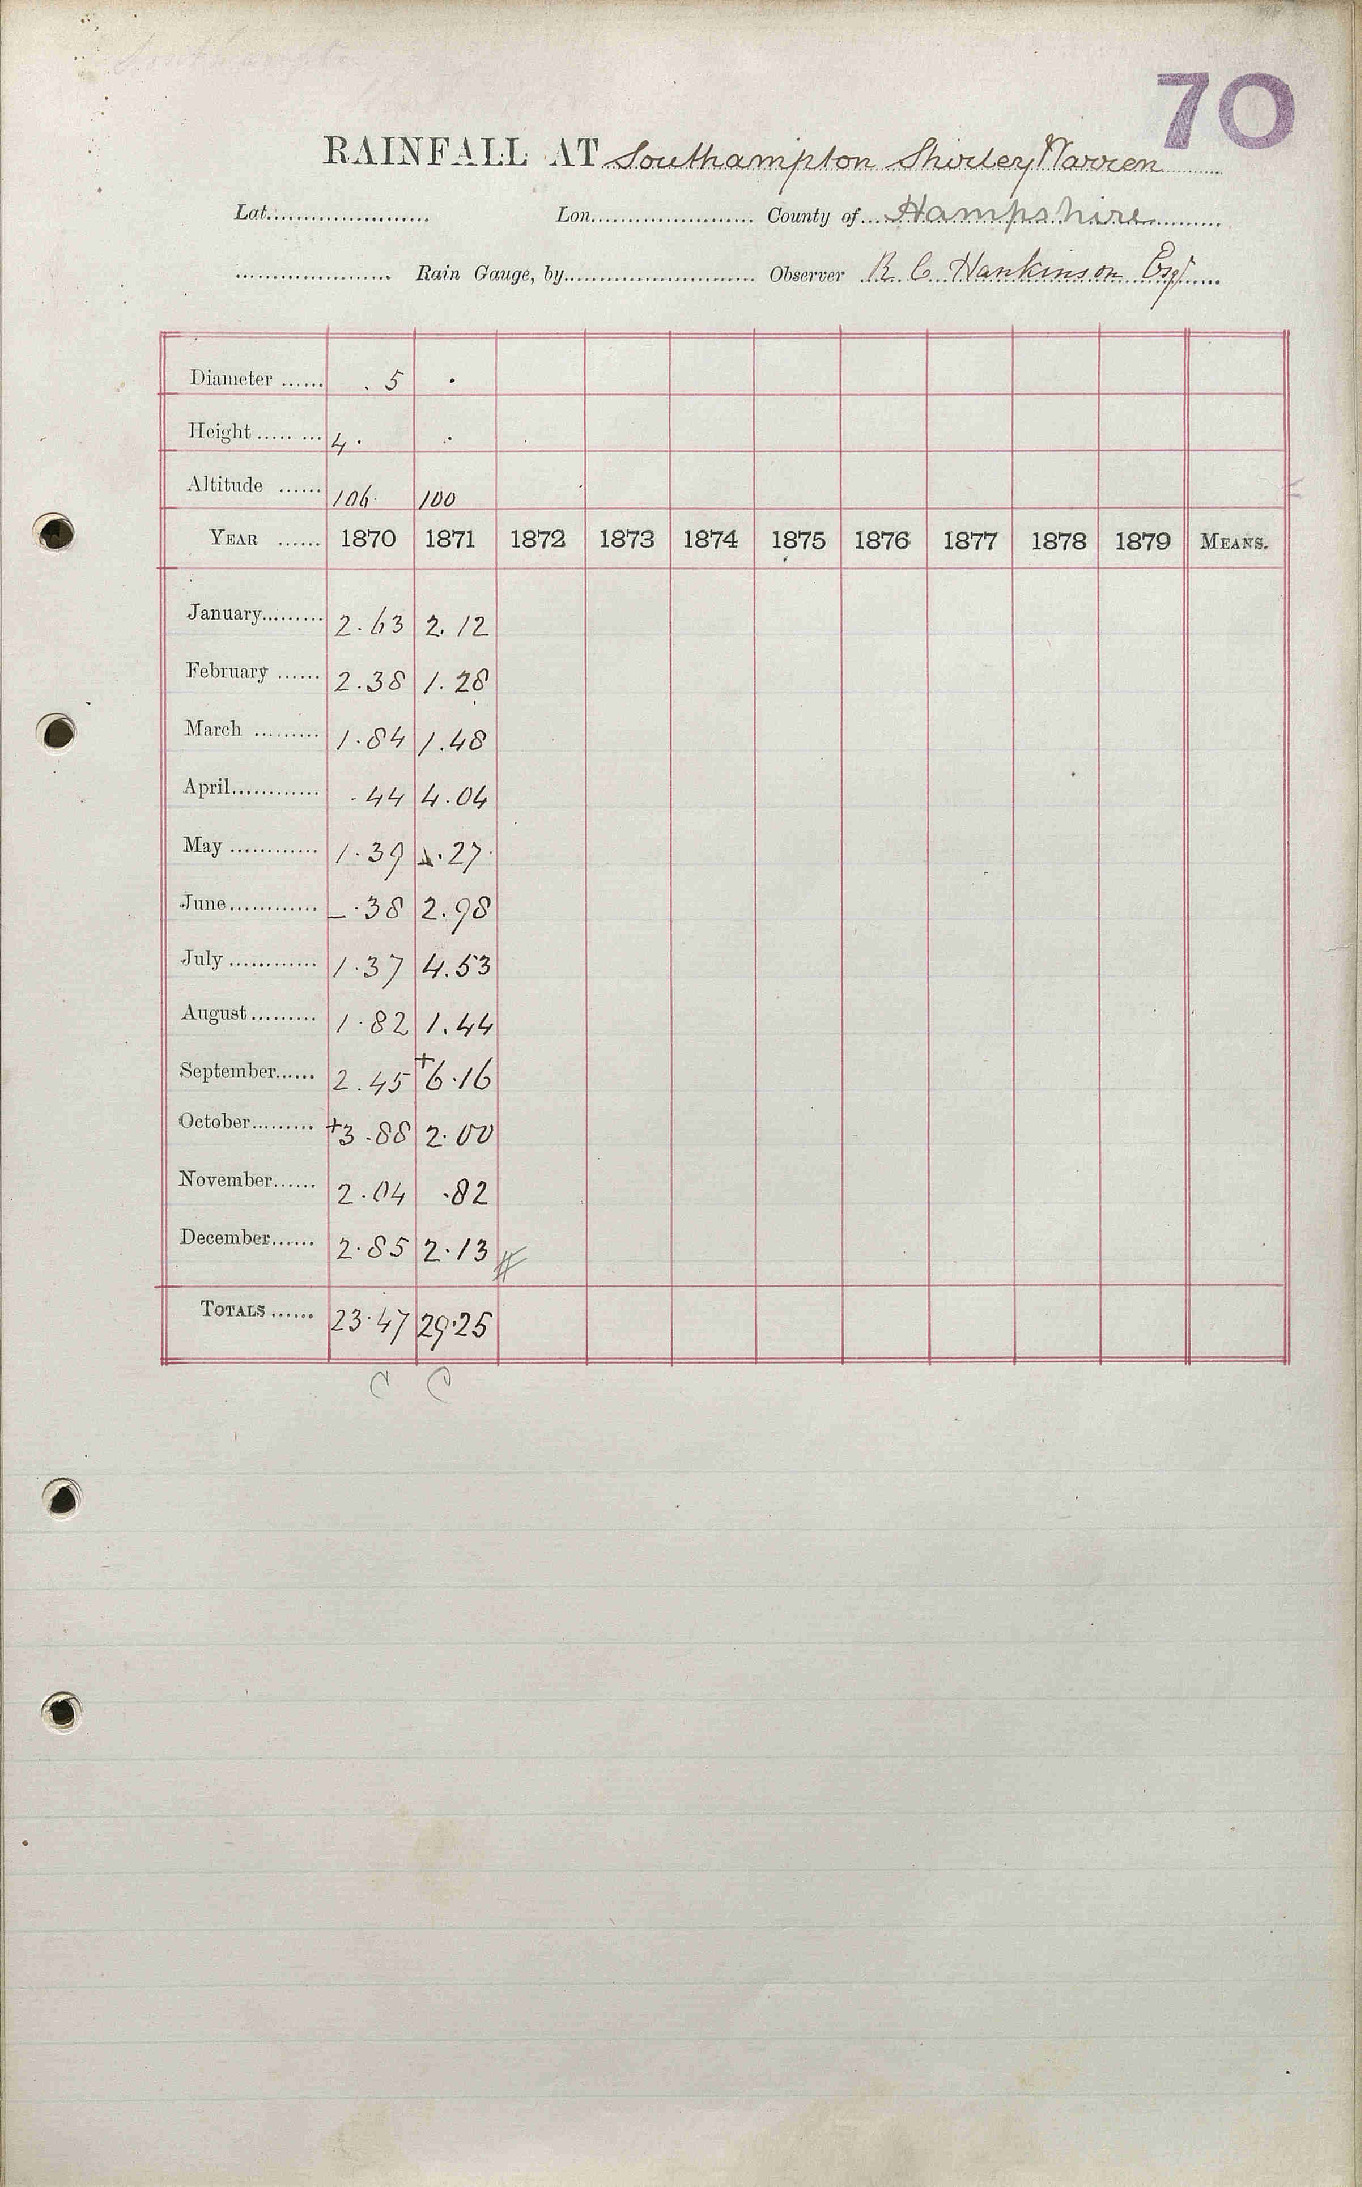 70
RAINFALL AT Southampton Shirley Warren
Lat. Lon. County of Hampshire
Rain Gauge, by Observer R. C. Hankinson Esqr
Diameter ...... . 5 .
Height ...... 4. .
Altitude ...... 106 100
YEAR ...... 1870 1871 1872 1873 1874 1875 1876 1877 1878 1879 MEANS.
January ...... 2.63 2.12
February ...... 2.38 1.28
March ...... 1.84 1.48
April ...... .44 4.04
May ...... 1.39 .27
June ...... –.38 2.98
July ...... 1.37 4.53
August ...... 1.82 1.44
September ...... 2.45 +6.16
October ...... +3.88 2.00
November ...... 2.04 .82
December ...... 2.85 2.13 #
TOTALS ...... 23.47 29.25
C C